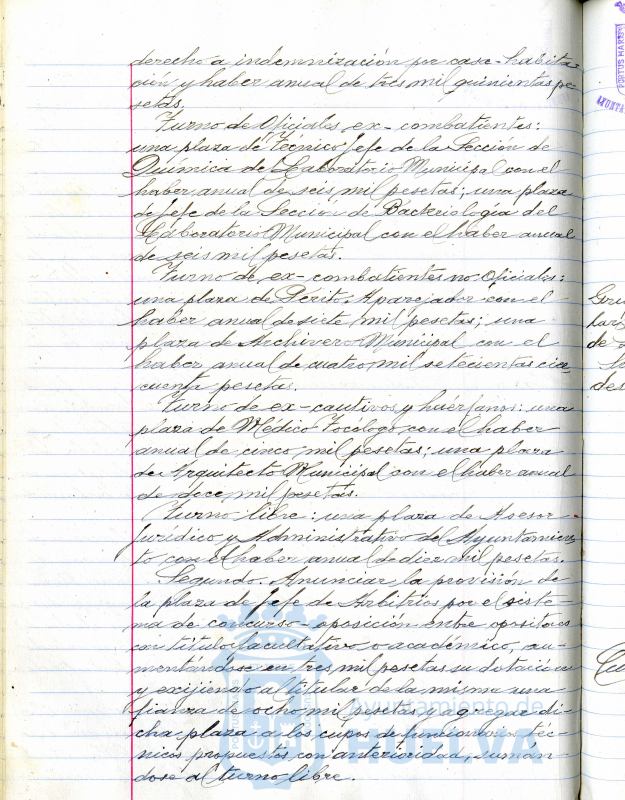 derecho a indemnización por casa-habita-
ción y haber anual de tres mil quinientas pe-
setas.
Turno de Oficiales ex-combatientes:
una plaza de Técnico Jefe de la Sección de
Química del Laboratorio Municipal con el
haber anual de seis mil pesetas; una plaza
de Jefe de la Sección de Bacteriología del
Laboratorio Municipal con el haber anual
de seis mil pesetas.
Turno de ex-combatientes no Oficiales:
una plaza de Perito Aparejador con el
haber anual de siete mil pesetas; una
plaza de Archivero Municipal con el
haber anual de cuatro mil setecientas cin-
cuenta pesetas.
Turno de ex-cautivos y huérfanos: una
plaza de Médico Tocólogo con el haber
anual de cinco mil pesetas; una plaza
de Arquitecto Municipal con el haber anual
de doce mil pesetas.
Turno libre: una plaza de Asesor
Jurídico y Administrativo del Ayuntamien-
to con el haber anual de diez mil pesetas.
Segundo. Anunciar la provisión de
la plaza de Jefe de Arbitrios por el siste-
ma de concurso-oposición entre opositores
con título facultativo o académico, au-
mentándose en tres mil pesetas su dotación
y exijiendo al titular de la misma una
fianza de ocho mil pesetas y agregar di-
cha plaza a los cupos de funcionarios téc-
nicos propuestos con anterioridad, sumán-
dose al turno libre.
Ayuntamiento de
HUELVA
PORTUS MARIS